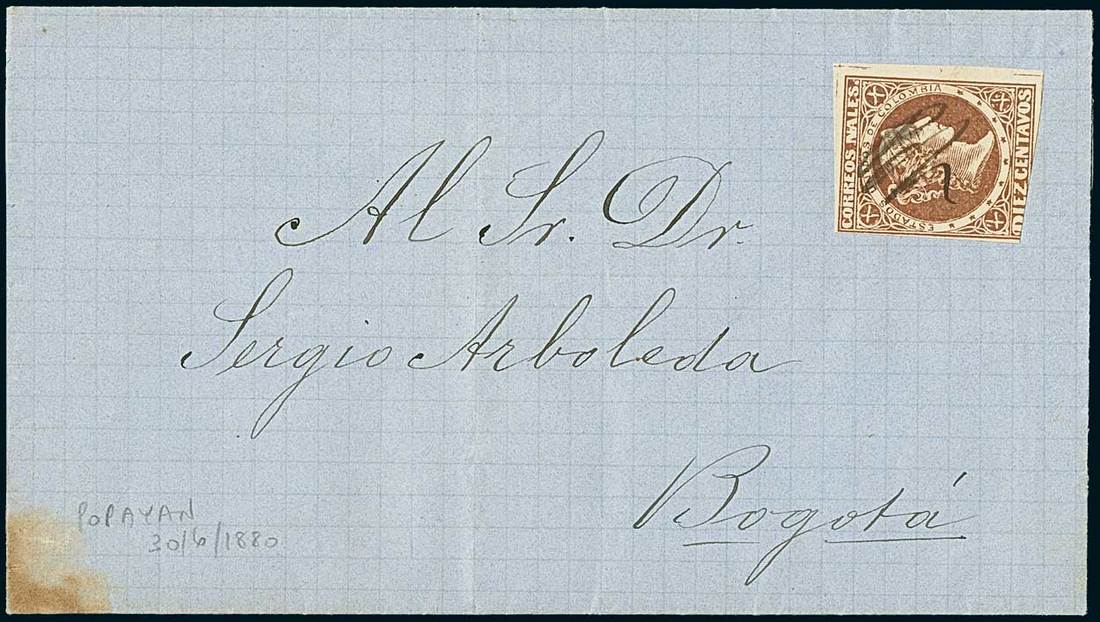 Al Sr. Dr.
Sergio Arboleda
Bogotá
POPAYAN
30/6/1880
CORREOS NALES.
ESTADOS UNIDOS DE COLOMBIA
DIEZ CENTAVOS